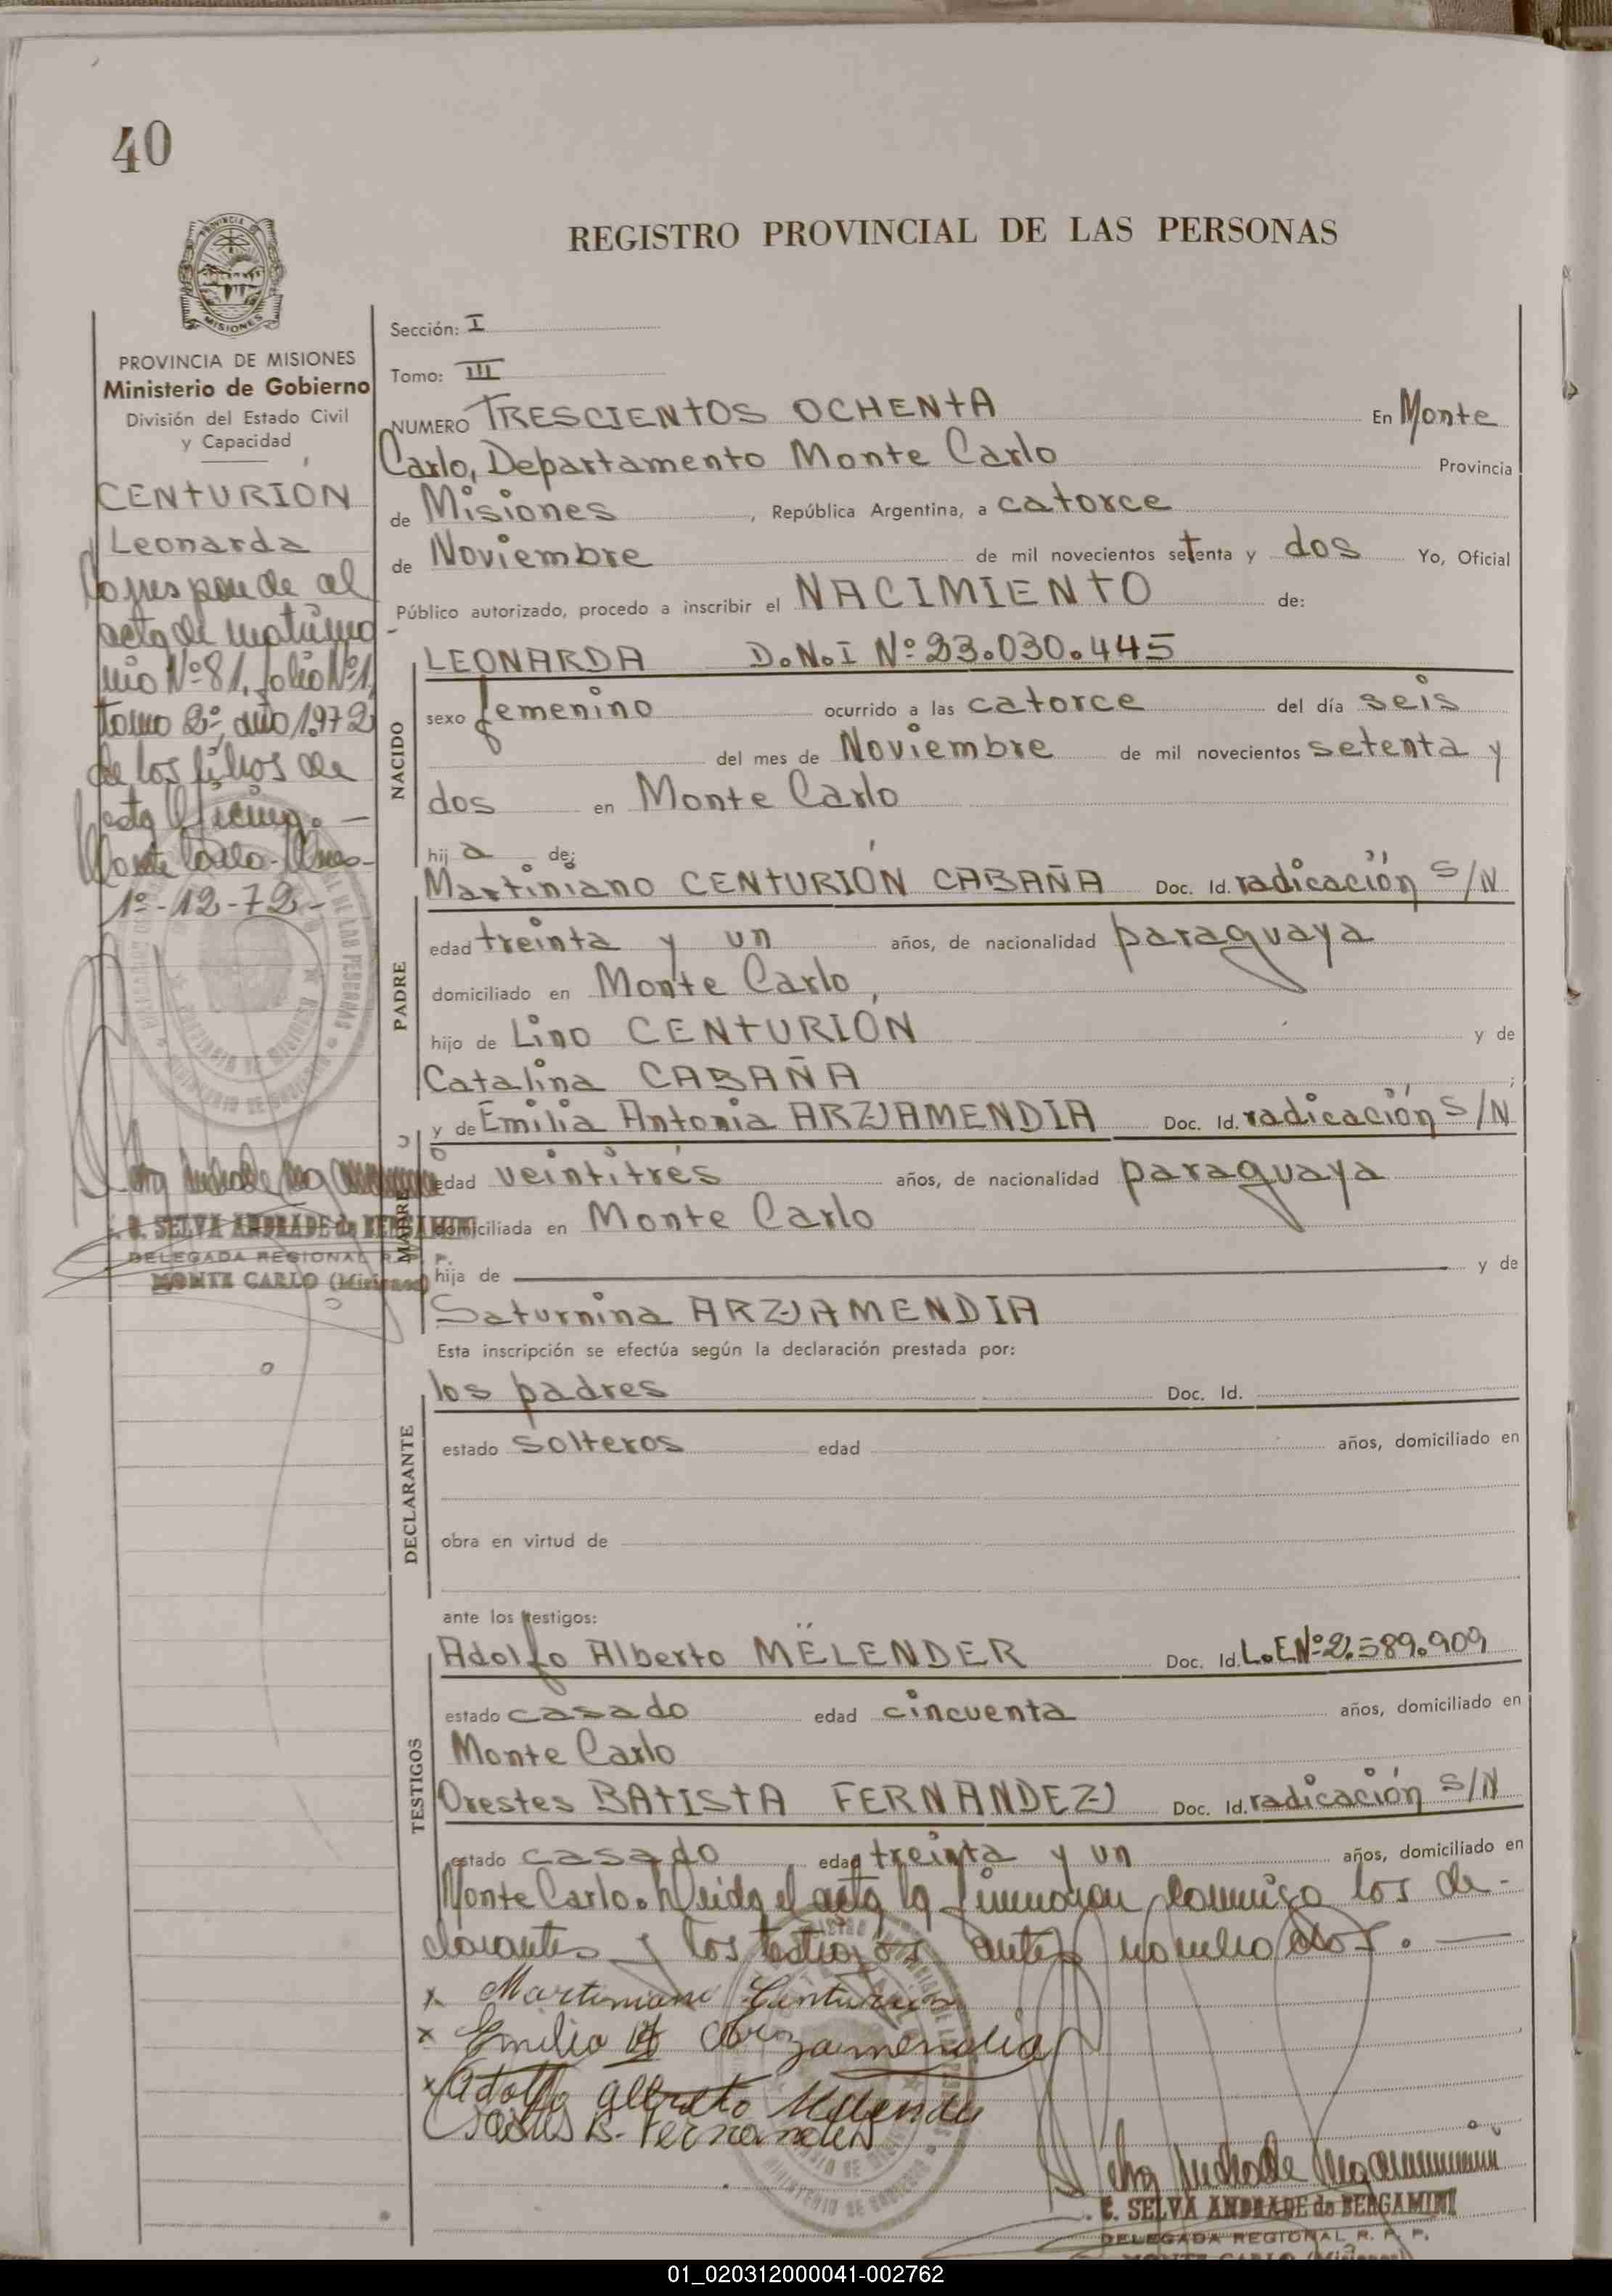 40
PROVINCIA DE
MISIONES
PROVINCIA DE MISIONES
Ministerio de Gobierno
División del Estado Civil
y Capacidad
CENTURIÓN
Leonarda
Corresponde al
acta de matrimo-
nio Nº 81, folio Nº 1,
tomo 2º, año 1.972
de los libros de
esta Oficina. —
Monte Carlo-Mnes-
1º-12-72-
SELVA ANDRADE de BERGAMINI
DELEGADA REGIONAL R. P. P.
MONTE CARLO (Misiones)
REGISTRO PROVINCIAL DE LAS PERSONAS
Sección: I
Tomo: III
NUMERO TRESCIENTOS OCHENTA En Monte
Carlo, Departamento Monte Carlo Provincia
de Misiones, República Argentina, a catorce
de Noviembre de mil novecientos setenta y dos Yo, Oficial
Público autorizado, procedo a inscribir el NACIMIENTO de:
NACIDO
LEONARDA D.N.I Nº 23.030.445
sexo femenino ocurrido a las catorce del día seis
del mes de Noviembre de mil novecientos setenta y
dos en Monte Carlo
hija de:
PADRE
Martiniano CENTURIÓN CABAÑA Doc. Id. radicación S/N
edad treinta y un años, de nacionalidad paraguaya
domiciliado en Monte Carlo,
hijo de Lino CENTURIÓN y de
Catalina CABAÑA ;
MADRE
y de Emilia Antonia ARZAMENDIA Doc. Id. radicación S/N
edad veintitrés años, de nacionalidad paraguaya
domiciliada en Monte Carlo
hija de y de
Saturnina ARZAMENDIA
Esta inscripción se efectúa según la declaración prestada por:
DECLARANTE
los padres Doc. Id.
estado solteros edad años, domiciliado en
obra en virtud de
ante los testigos:
TESTIGOS
Adolfo Alberto MËLENDER Doc. Id. L.E Nº 2.589.909
estado casado edad cincuenta años, domiciliado en
Monte Carlo
Orestes BATISTA FERNANDEZ Doc. Id. radicación S/N
estado casado edad treinta y un años, domiciliado en
Monte Carlo. Leída el acta la firmaron conmigo los de-
clarantes y los testigos antes nombrados. —
x Martiniano Centurion
x Emilia A Arzamendia
x Adolfo Alberto Melender
Orestes B. Fernandez
SELVA ANDRADE de BERGAMINI
DELEGADA REGIONAL R. P. P.
MONTE CARLO (Misiones)
01_020312000041-002762